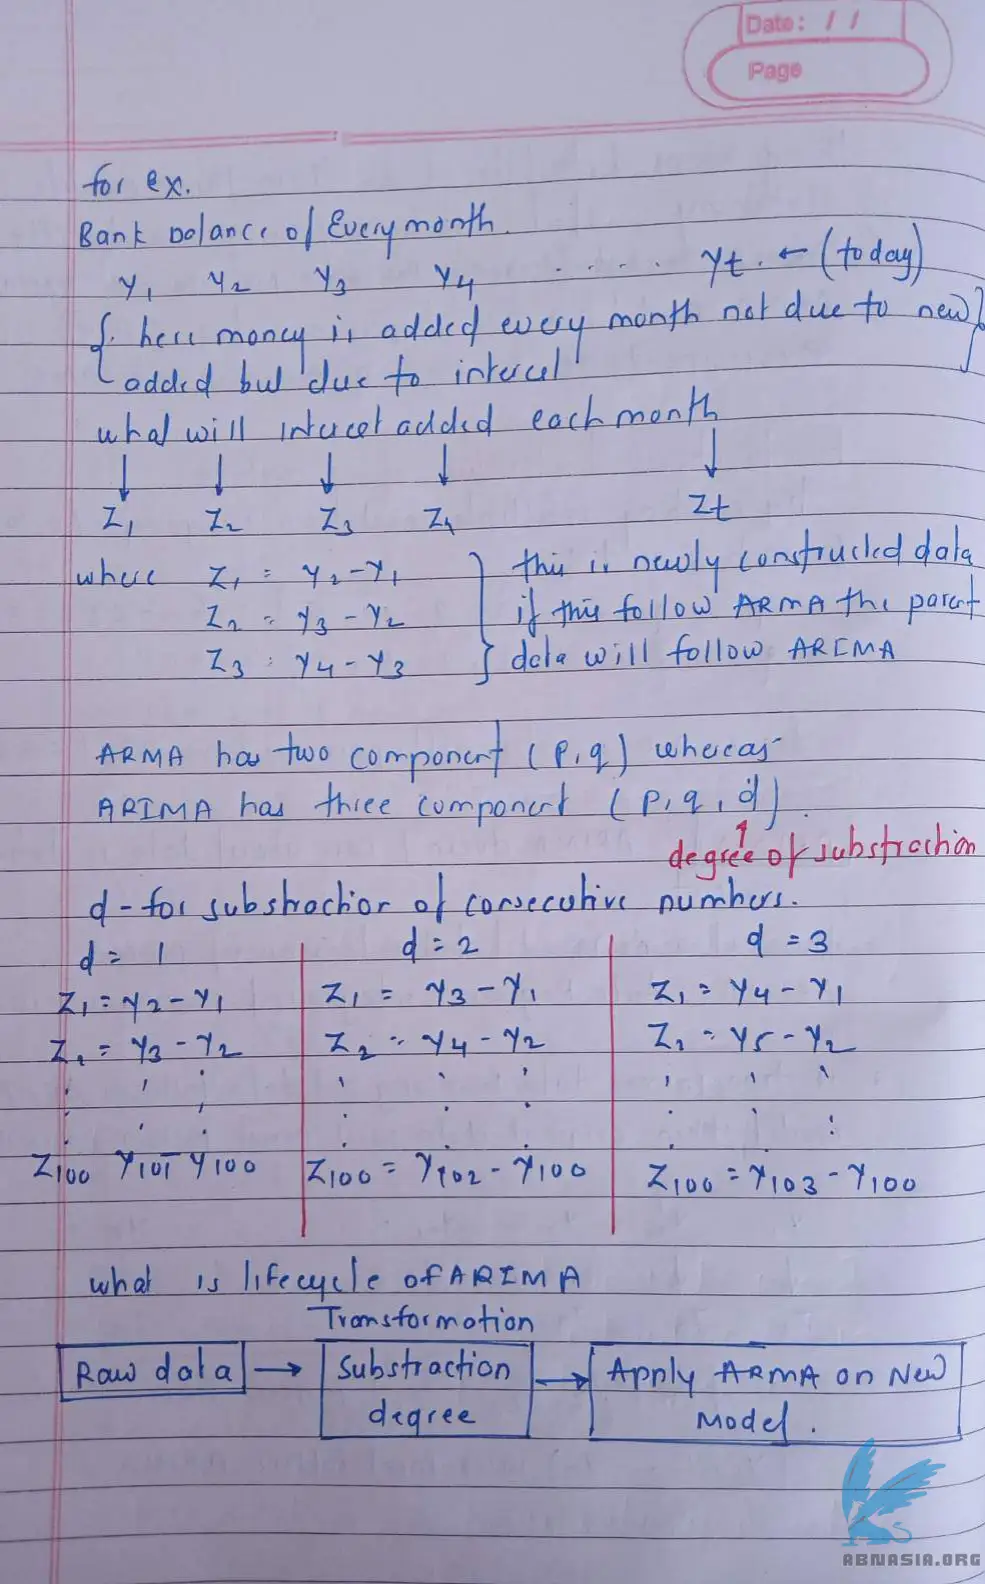 Date: / /
Page
for ex.
Bank balance of Every month.
y1 y2 y3 y4 ..... yt. ← (today)
{ here money is added every month not due to new }
added but due to interest
what will interest added each month
↓ ↓ ↓ ↓ ↓
Z1 Z2 Z3 Z4 Zt
where Z1 = y2-y1 } this is newly constructed data
Z2 = y3-y2 if this follow ARMA the parent
Z3 = y4-y3 } data will follow ARIMA
ARMA has two component (p,q) whereas
ARIMA has three component (p,q,d).
↑
degree of substraction
d-for substraction of consecutive numbers.
d=1 d=2 d=3
Z1=y2-y1 Z1= y3-y1 Z1= y4-y1
Z2= y3-y2 Z2= y4-y2 Z2= y5-y2
Z100 y101-y100 Z100= y102-y100 Z100=y103-y100
what is lifecycle of ARIMA
Transformotion
Raw data → Substraction → Apply ARMA on New
degree Model.
ABNASIA.ORG